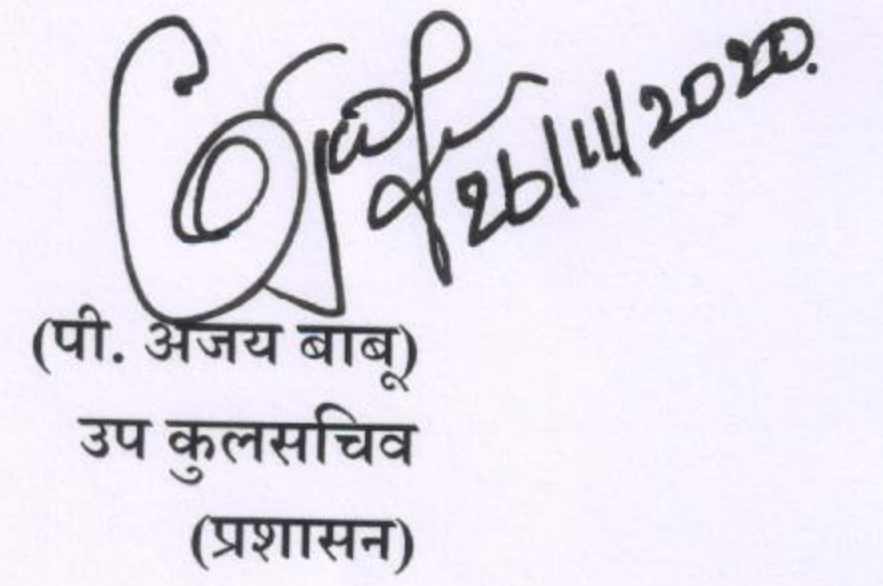 26/11/2020.
(पी. अजय बाबू)
उप कुलसचिव
(प्रशासन)